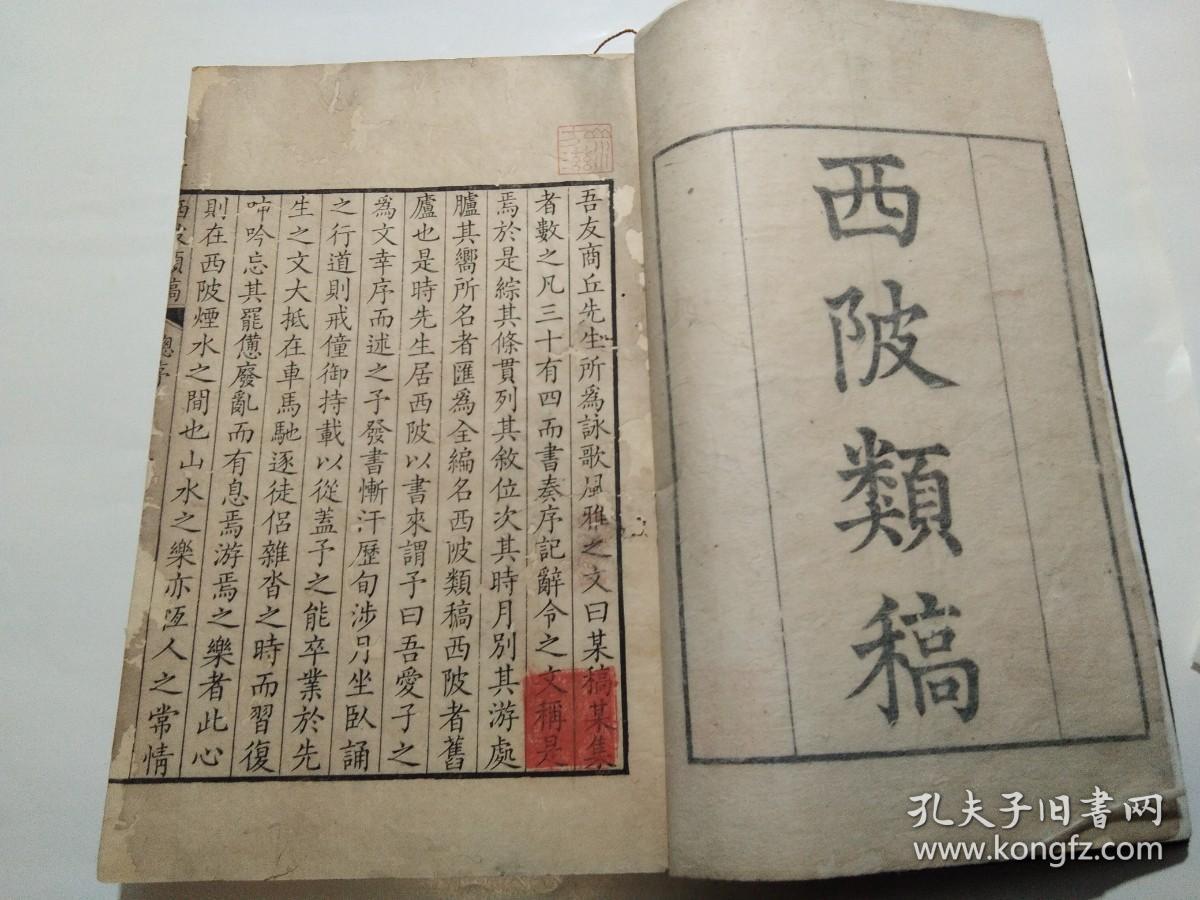 西陂類稿
吾友商丘先生所爲詠歌風雅之文曰某稿某集
者數之凡三十有四而書奏序記辭令之文稱是
焉於是綜其條貫列其敘位次其時月別其游處
臚其嚮所名者匯爲全編名西陂類稿西陂者舊
廬也是時先生居西陂以書來謂予曰吾愛子之
爲文幸序而述之予發書慚汗歷旬涉月坐臥誦
之行道則戒僮御持載以從蓋予之能卒業於先
生之文大抵在車馬馳逐徒侶雜沓之時而習復
啼吟忘其罷憊廢亂而有息焉游焉之樂者此心
則在西陂煙水之間也山水之樂亦恆人之常情
西陂類稿 總序
孔夫子旧书网
www.kongfz.com